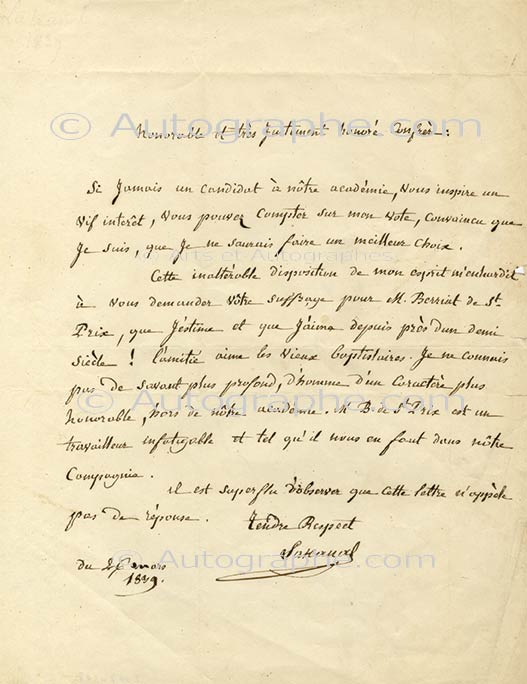 Lakanal
1839
Honorable et très justement honoré Confrère:
Si Jamais un candidat à nôtre académie, vous inspire un
vif interêt, vous pouvez Compter sur mon vote, convaincu que
Je suis, que Je ne saurais faire un meilleur choix.
Cette inaltérable disposition de mon esprit m'enhardit
à vous demander vôtre suffrage pour M. Berriat de St
Prix, que J'estime et que J'aime depuis près d'un demi
siècle ! l'amitié aime les vieux baptistaires. Je ne connais
pas de savant plus profond, d'homme d'un Caractère plus
honorable, hors de nôtre académie. M B. de St Prix est un
travailleur infatigable et tel qu'il nous en faut dans nôtre
Compagnie.
il est superflu d'observer que cette lettre n'appèle
pas de réponse. Tendre Respect
Lakanal
du 26 mars
1839.
© Autographe.com
© Arts et Autographes
© Autographe.com
© Autographe.com